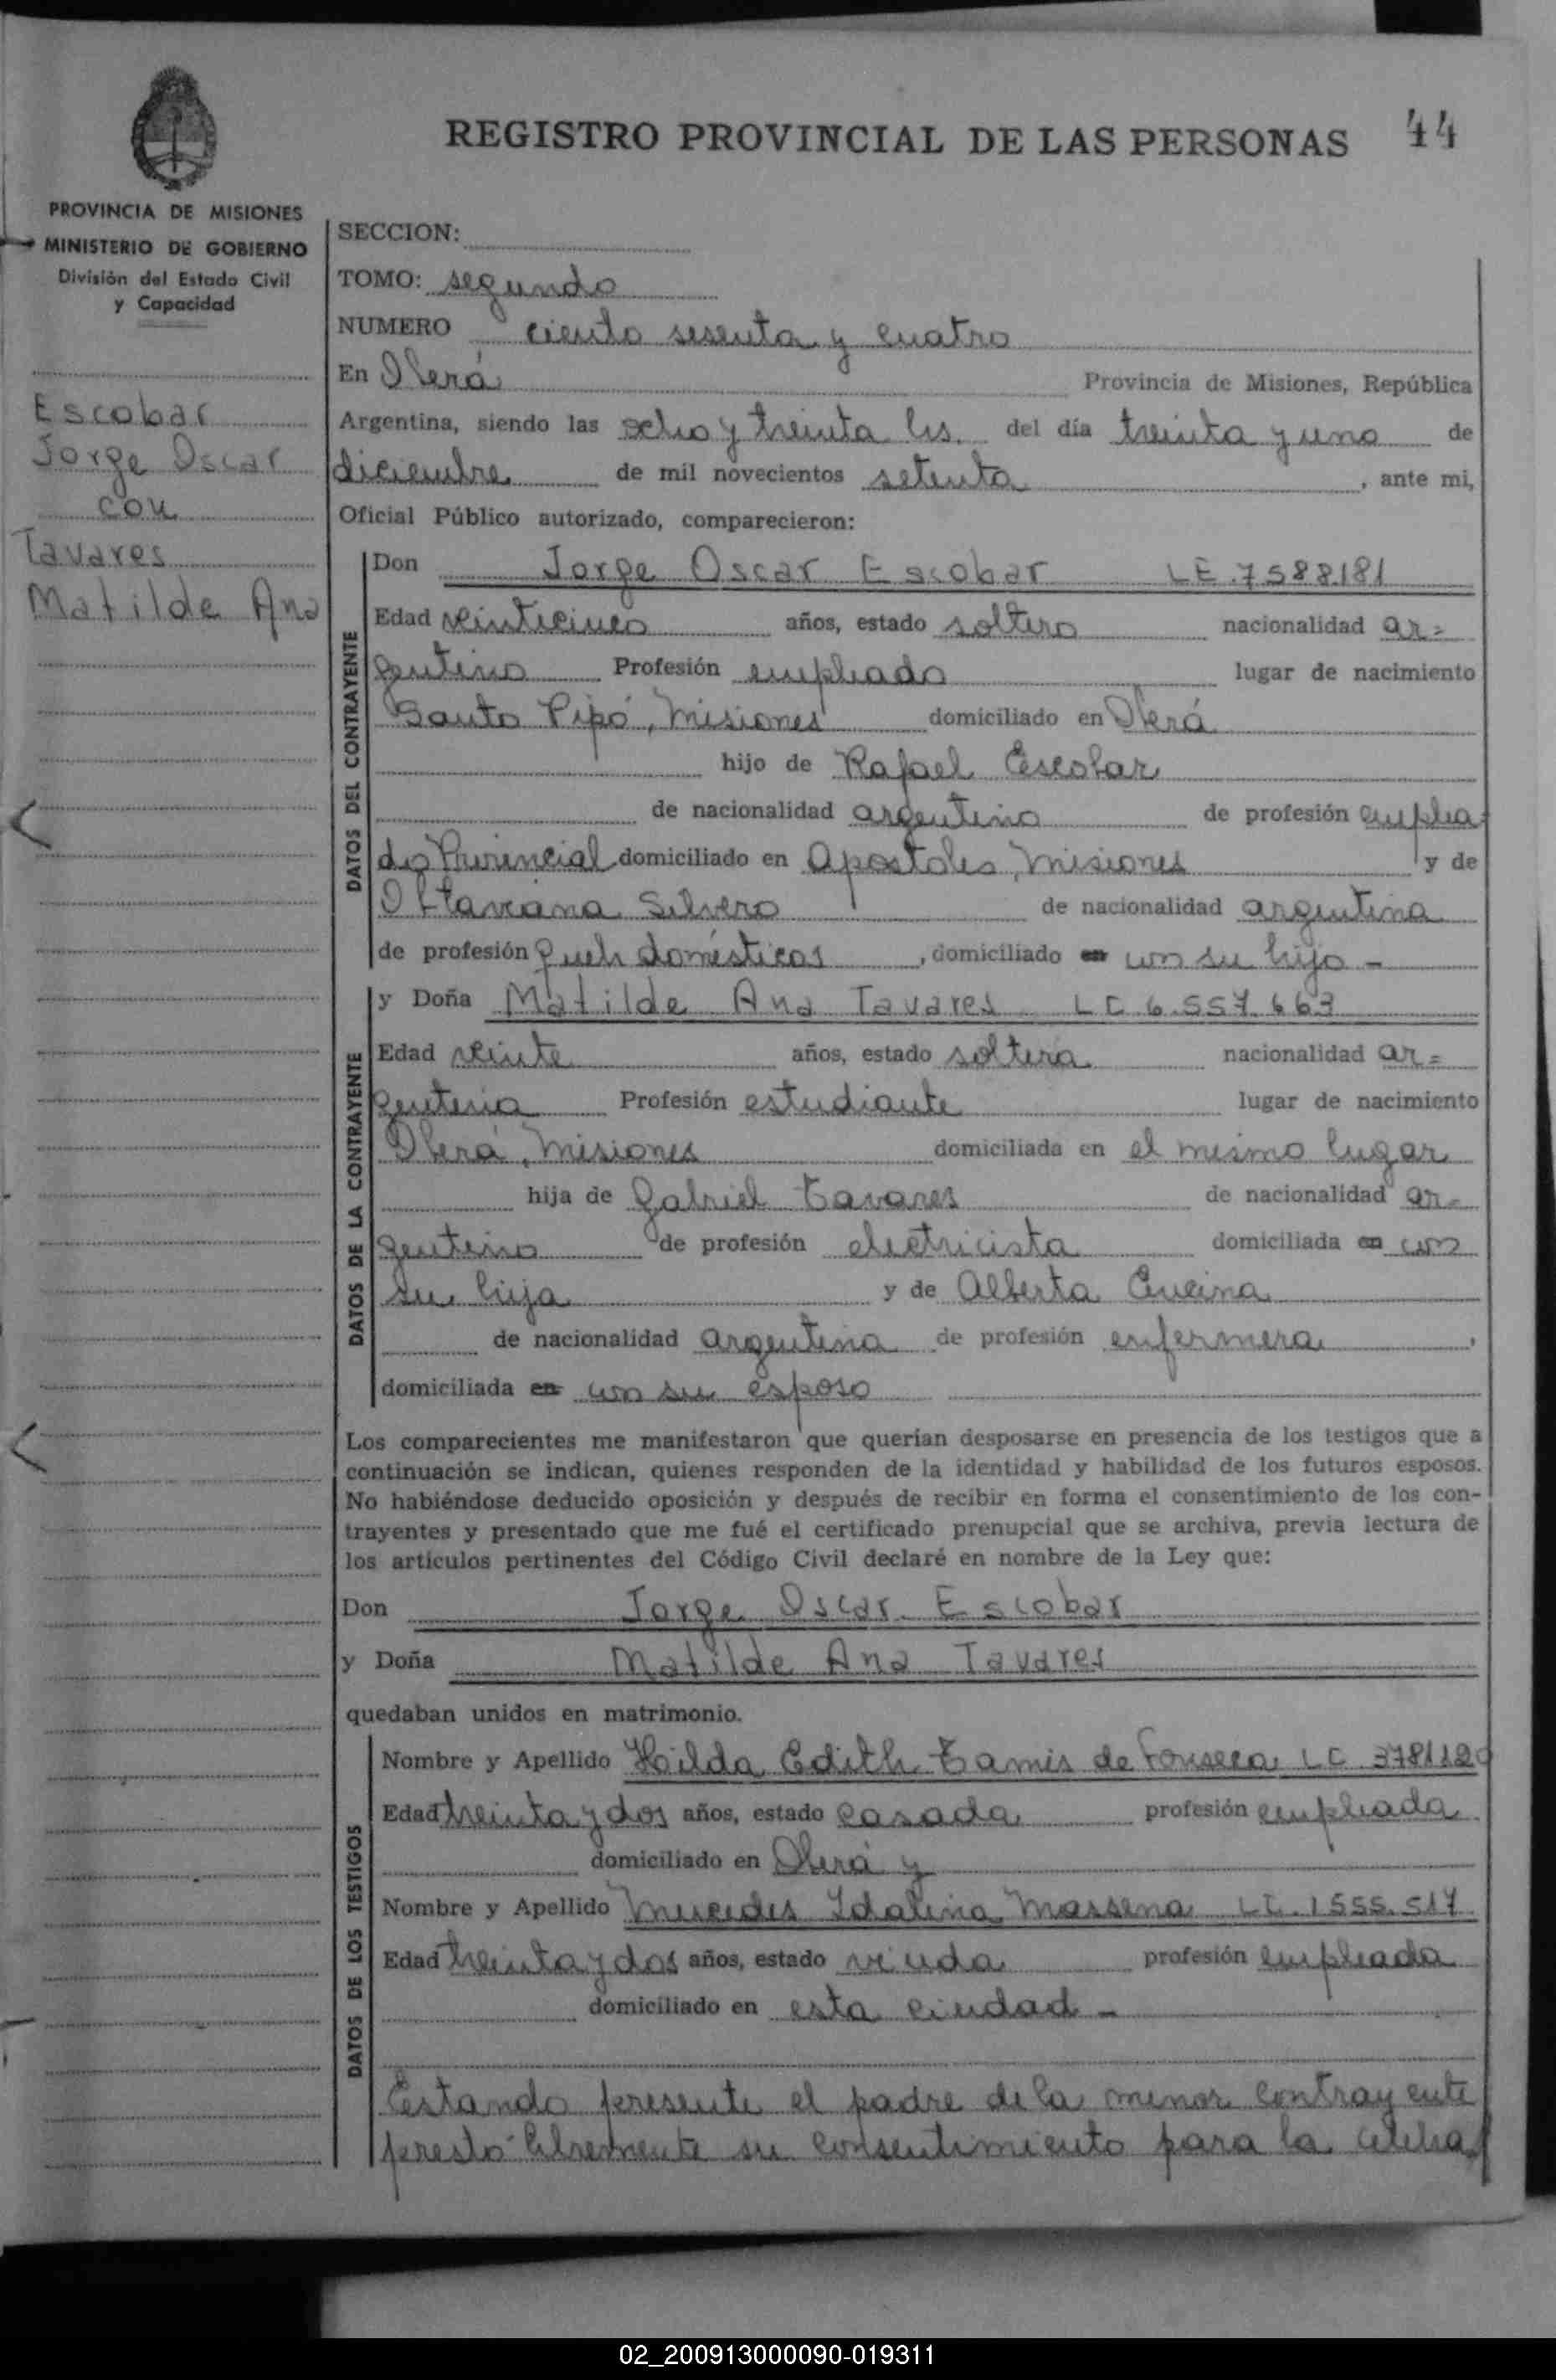 REGISTRO PROVINCIAL DE LAS PERSONAS 44
PROVINCIA DE MISIONES
MINISTERIO DE GOBIERNO
División del Estado Civil
y Capacidad
Escobar
Jorge Oscar
con
Tavares
Matilde Ana
SECCION:
TOMO: segundo
NUMERO ciento sesenta y cuatro
En Oberá Provincia de Misiones, República
Argentina, siendo las ocho y treinta hs. del día treinta y uno de
diciembre de mil novecientos setenta, ante mi,
Oficial Público autorizado, comparecieron:
DATOS DEL CONTRAYENTE
Don Jorge Oscar Escobar LE.7588181
Edad veinticinco años, estado soltero nacionalidad ar=
gentino Profesión empleado lugar de nacimiento
Santo Pipó, Misiones domiciliado en Oberá
hijo de Rafael Escobar
de nacionalidad argentino de profesión emplea
do Provincial domiciliado en Apostoles, Misiones y de
Silvero de nacionalidad argentina
de profesión queh domésticos, domiciliado en con su hijo -
DATOS DE LA CONTRAYENTE
y Doña Matilde Ana Tavares LC 6.557.663
Edad veinte años, estado soltera nacionalidad ar=
gentina Profesión estudiante lugar de nacimiento
Oberá, Misiones domiciliada en el mismo lugar
hija de Gabriel Tavares de nacionalidad ar-
gentino de profesión electricista domiciliada en con
su hija y de Alberta Encina
de nacionalidad argentina de profesión enfermera,
domiciliada en con su esposo
Los comparecientes me manifestaron que querían desposarse en presencia de los testigos que a
continuación se indican, quienes responden de la identidad y habilidad de los futuros esposos.
No habiéndose deducido oposición y después de recibir en forma el consentimiento de los con-
trayentes y presentado que me fué el certificado prenupcial que se archiva, previa lectura de
los artículos pertinentes del Código Civil declaré en nombre de la Ley que:
Don Jorge Oscar Escobar
y Doña Matilde Ana Tavares
quedaban unidos en matrimonio.
DATOS DE LOS TESTIGOS
Nombre y Apellido Hilda Edith Tamis de Fonseca LC 3781120
Edad treinta y dos años, estado casada profesión empleada
domiciliado en Oberá y
Nombre y Apellido Mercedes Idalina Massena LC.1555.517
Edad treinta y dos años, estado viuda profesión empleada
domiciliado en esta ciudad -
Estando presente el padre de la menor contrayente
prestó libremente su consentimiento para la celebra
02_200913000090-019311